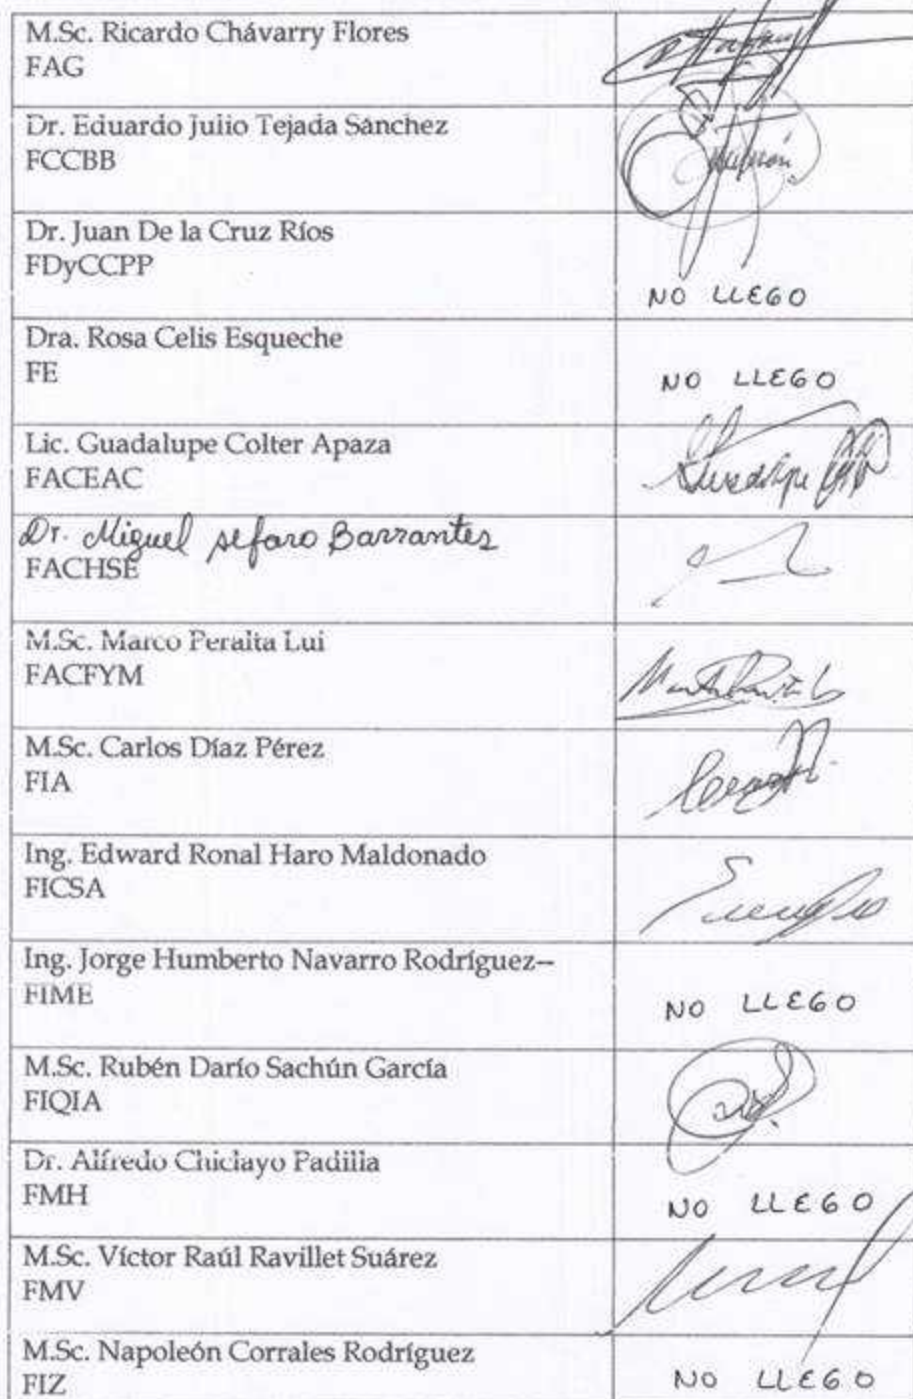 M.Sc. Ricardo Chávarry Flores
FAG
Dr. Eduardo Julio Tejada Sánchez
FCCBB
Dr. Juan De la Cruz Ríos
FDyCCPP
NO LLEGO
Dra. Rosa Celis Esqueche
FE
NO LLEGO
Lic. Guadalupe Colter Apaza
FACEAC
Guadalupe
Dr. Miguel Alfaro Barrantes
FACHSE
M.Sc. Marco Peralta Lui
FACFYM
M.Sc. Carlos Díaz Pérez
FIA
Ing. Edward Ronal Haro Maldonado
FICSA
Ing. Jorge Humberto Navarro Rodríguez--
FIME
NO LLEGO
M.Sc. Rubén Darío Sachún García
FIQIA
Dr. Alfredo Chiclayo Padilla
FMH
NO LLEGO
M.Sc. Víctor Raúl Ravillet Suárez
FMV
M.Sc. Napoleón Corrales Rodríguez
FIZ
NO LLEGO